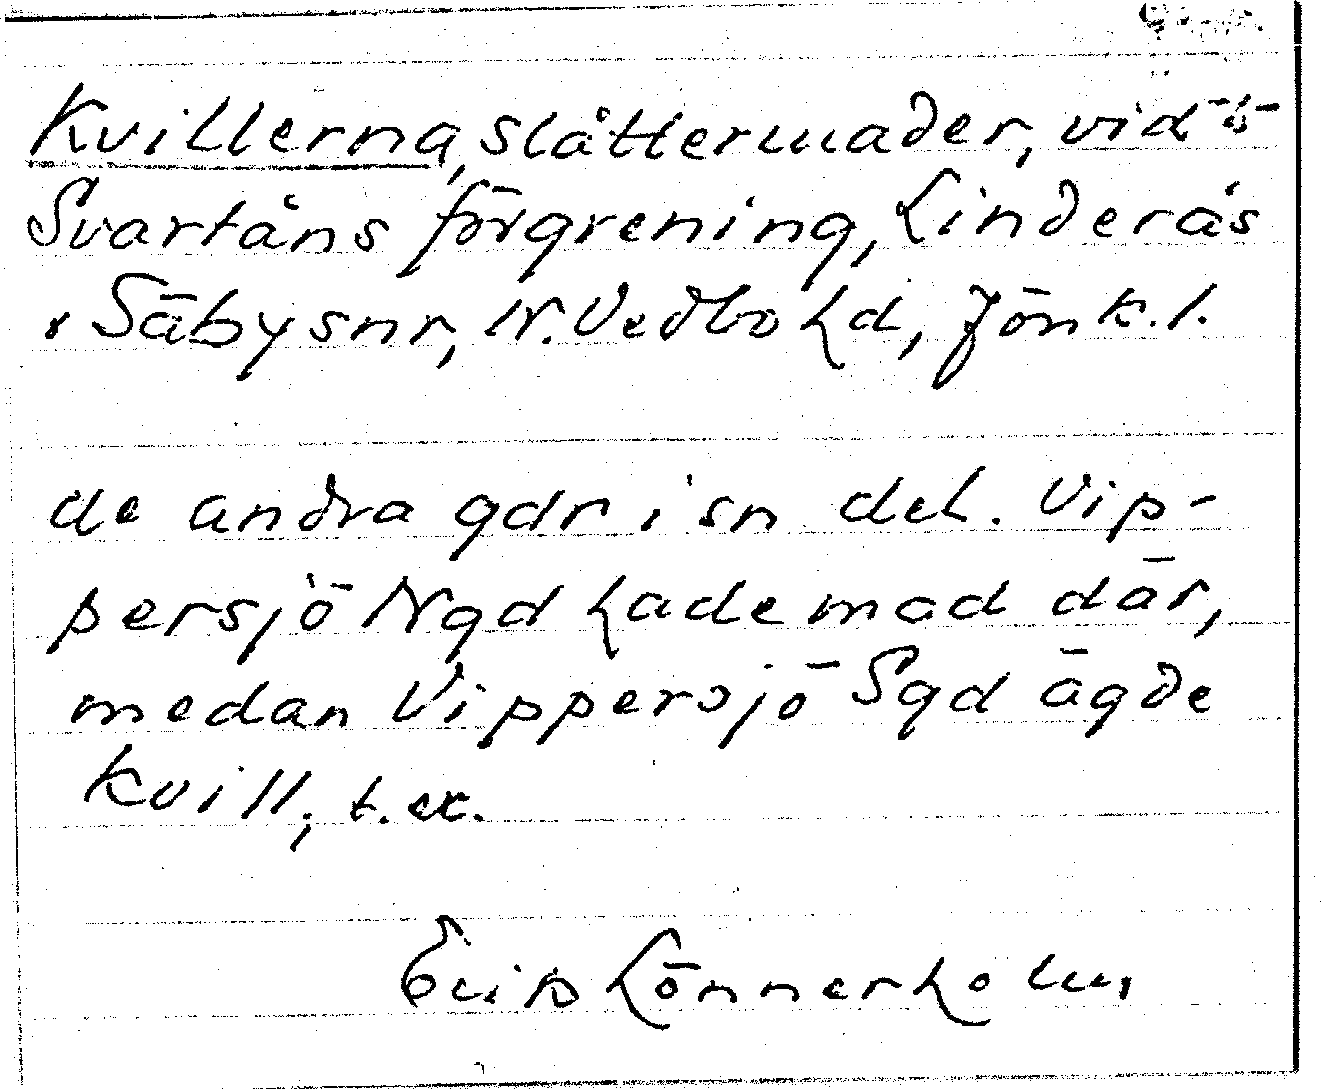 Kvillerna, slåttermader, vid
Svartåns förgrening, Linderås
i Säbysnr, N. Vedbo hd, Jönk. l.
de andra gdr i sn del. Vip-
persjö Ngd hade mad där,
medan Vippersjö Sgd ägde
kvill, t.ex.
Erik Lönnerholm